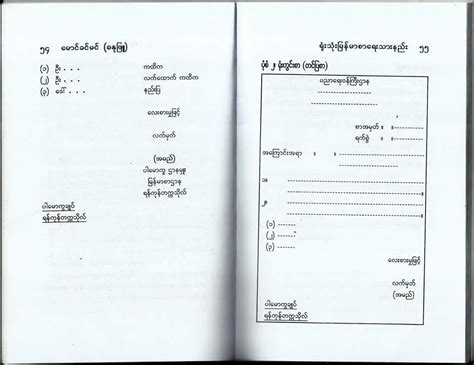 ၅၄ မောင်ခင်မင် (ဓနုဖြူ)
(၁) ဦး . . . ကထိက
(၂) ဦး . . . လက်ထောက် ကထိက
(၃) ဒေါ် . . . နည်းပြ
လေးစားမှုဖြင့်
လက်မှတ်
(အမည်)
ပါမောက္ခ ဌာနမှူး
မြန်မာစာဌာန
ရန်ကုန်တက္ကသိုလ်
ပါမောက္ခချုပ်
ရန်ကုန်တက္ကသိုလ်
ရုံးသုံးမြန်မာစာရေးသားနည်း ၅၅
ပုံစံ ၂၊ ရုံးတွင်းစာ (တင်ပြစာ)
ပညာရေးဝန်ကြီးဌာန
စာအမှတ် ။ ။
ရက်စွဲ ။ ။
အကြောင်းအရာ ။ ။
၁။
၂။
(၁)
(၂)
(၃)
လေးစားမှုဖြင့်
လက်မှတ်
(အမည်)
ပါမောက္ခချုပ်
ရန်ကုန်တက္ကသိုလ်